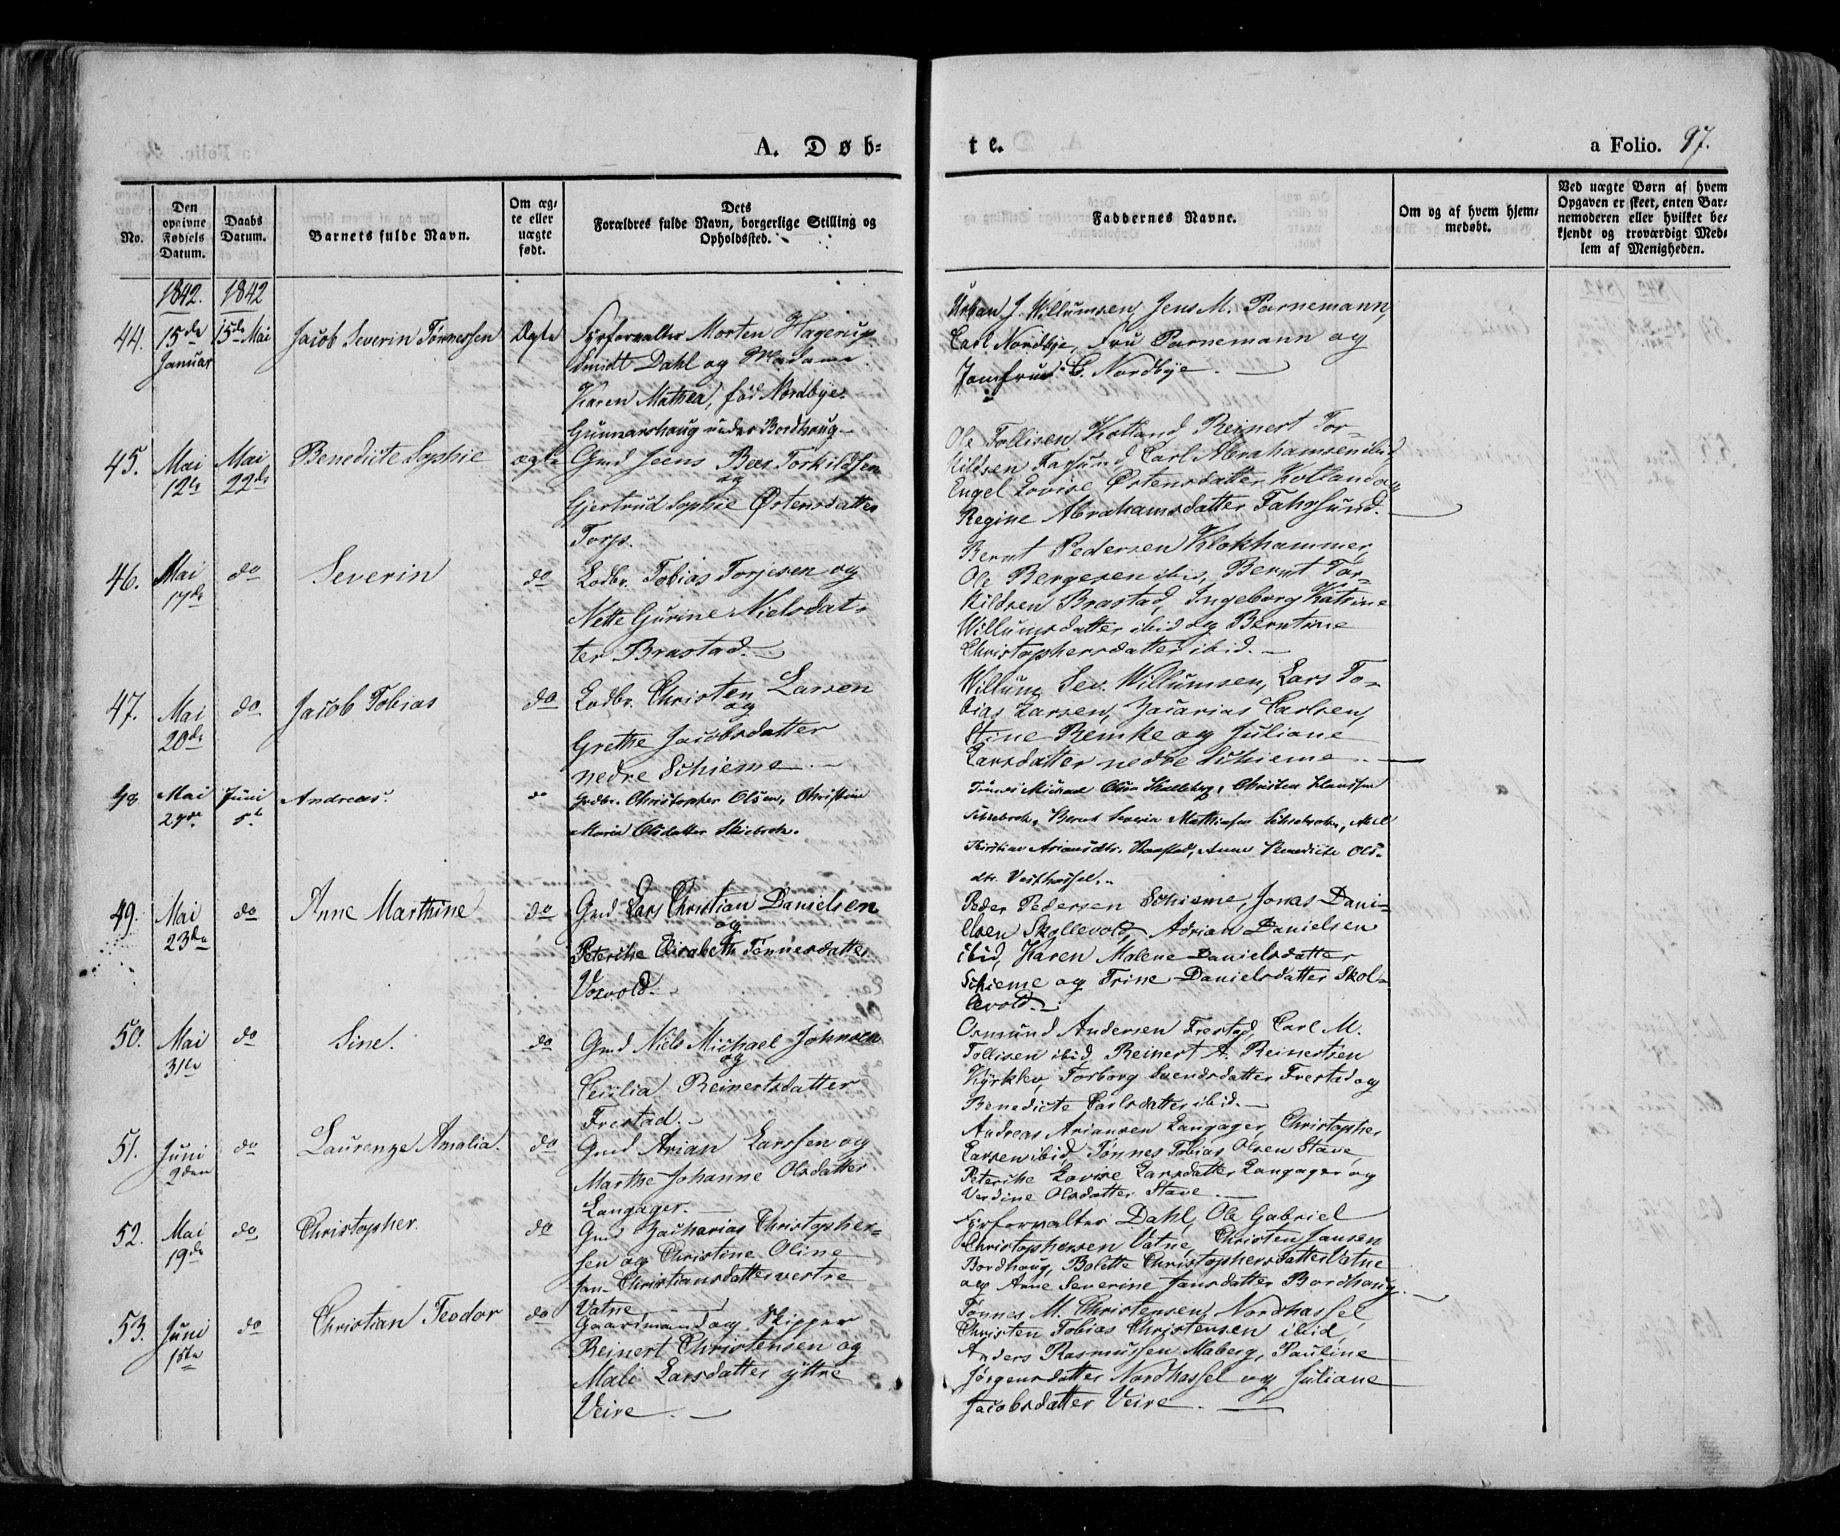 A. Døb-
te.
a Folio. 97.
No.
Den opgivne Fødsels Datum.
Daabs Datum.
Barnets fulde Navn.
Om ægte eller uægte født.
Dets Forældres fulde Navn, borgerlige Stilling og Opholdssted.
Faddernes Navne.
Om og af hvem hjemmedøbt.
Ved uægte Børn af hvem Opgaven er skeet, enten Barnemoderen eller hvilket bekjendt og troværdigt Medlem af Menigheden.
1842. 1842
44. 15de Januar 15de Mai Jacob Severin Tønnessen Ægte
Fyrforvalter Morten Hagerup
Smidt Dahl og Madame
Karen Mathea, fød Nordbye.
Gunnarshaug under Bordhaug
Urban J. Willumsen, Jens M. Parnemann,
Carl Nordbye, Fru Parnemann og
Jomfrue C. Nordbye.
45. Mai 12te Mai 22de Benedicte Sophie ægte
Gmd Jeens Bees Torkildsen
og
Gjertrud Sophie Østensdatter
Torp.
Ole Tollisen Kotland, Reinert Tor-
kildsen Farsund, Carl Abrahamsen ibid
Engel Lovise Østensdatter Kotland og
Regine Abrahamsdatter Fahrsund.
46. Mai 17de do Severin do
Lodbr. Tobias Torjesen og
Nette Gurine Nielsdat-
ter Brastad.
Bernt Pedersen Klokhammer,
Ole Bergesen ibid, Bernt Tor-
kildsen Brastad, Ingeborg Katrine
Willumsdatter ibid og Berntine
Christophersdatter ibid.
47. Mai 20de do Jacob Tobias do
Lodbr. Christen Larsen
og
Grethe Jacobsdatter
nedre Schieme.
Willum Sev. Willumsen, Lars To-
bias Larsen, Zacarias Carlsen,
Stine Remke og Juliane
Larsdatter nedre Schieme.
48 Mai 29de Juni 5te Andreas. do
Lodbr. Christopher Olsen, Christine
Maria Olsdatter Skiebrok.
Tønnes Michael Olsen, Christen Klausen
Schiebrok, Bernt Severin Mathiasen Schiebrok, Abel
Kirstine Ariansdtr., Anne Benedicte Ols-
dtr. Vesthassel.
49. Mai 23de do Anne Marthine do
Gmd Lars Christian Danielsen
og
Peterike Elisabeth Tønnesdatter
Voxvold.
Peder Pedersen Schieme, Jonas Dani-
elsen Skollevold, Adrian Danielsen
ibid, Karen Malene Danielsdatter
Schieme og Trine Danielsdatter Skol-
levold.
50. Mai 31te do Sine. do
Gmd Niels Michael Johnsen
og
Cecilia Reinertsdatter
Frestad.
Osmund Andersen Frestad, Carl M.
Tollisen ibid, Reinert A. Reinertsen
Kyrklev, Torborg Svendsdatter Frestad og
Benedicte Carlsdatter ibid.
51. Juni 2den do Laurenze Amalia. do
Gmd Arian Larssen og
Marthe Johanne Olsdatter
Langager.
Andreas Ariansen Langager, Christopher
Larsen ibid, Tønnes Tobias Olsen Stave,
Peterike Lovise Larsdatter Langager og
Verdine Olsdatter Stave.
52. Mai 19de do Christopher. do
Gmd Zacharias Christopher-
sen og Christine Oline
Jan-Christiansdatter vestre
Vatne
Fyrforvalter Dahl, Ole Gabriel
Christophersen Vatne, Christen Jansen
Bordhaug, Bolette Christophersdatter Vatne
og Anne Severine Jansdatter Bordhaug.
53. Juni 1ste do Christian Teodor do
Gaardmand og Skipper
Reinert Christensen og
Mali Larsdatter yttre
Veire.
Tønnes M. Christensen Nordhassel,
Christen Tobias Christensen ibid,
Anders Rasmussen Maberg, Pauline
Jørgensdatter Nordhassel og Juliane
Jacobsdatter Veire.